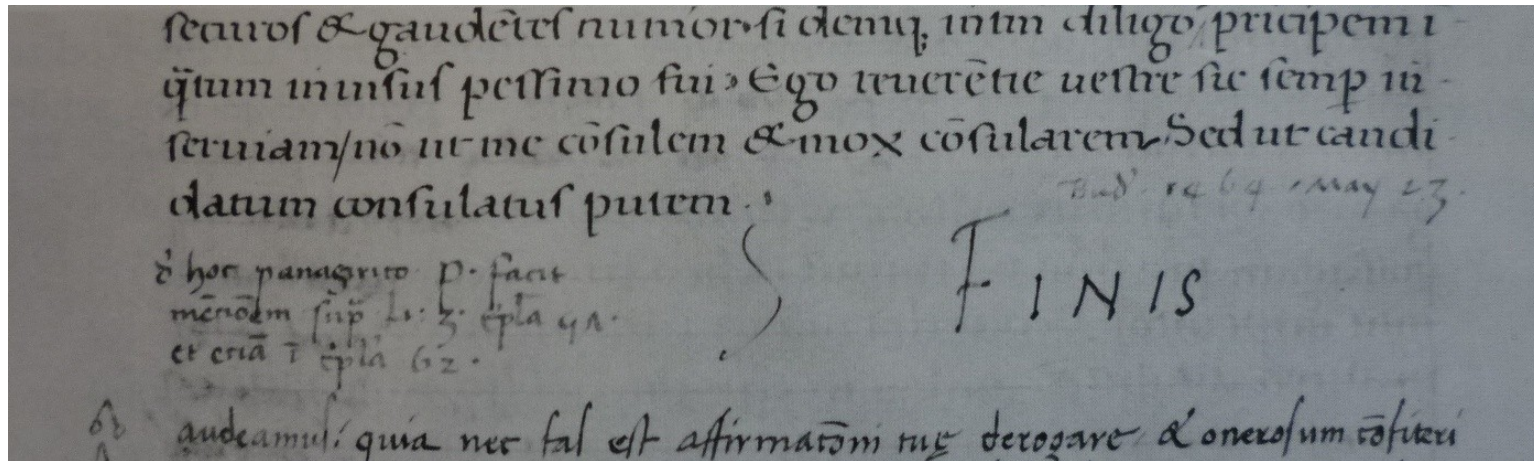 securos & gaudētes numor· si demq; intm diligo pricipem i
q̄tum inuisus pessimo fui› Ego reuerētie uestre sic semp in
seruiam/nō ut me cōsulem & mox cōsularem Sed ut candi
datum consulatus putem
Bud' 1464 May 23.
FINIS
hoc panagirico P· facit
mētiōem sup̄ li: 3· ep̄la
et etiā ī ep̄la 62·
audeamus/ quia nec fas est affirmatōni tuę derogare & onerosum cōfiteri